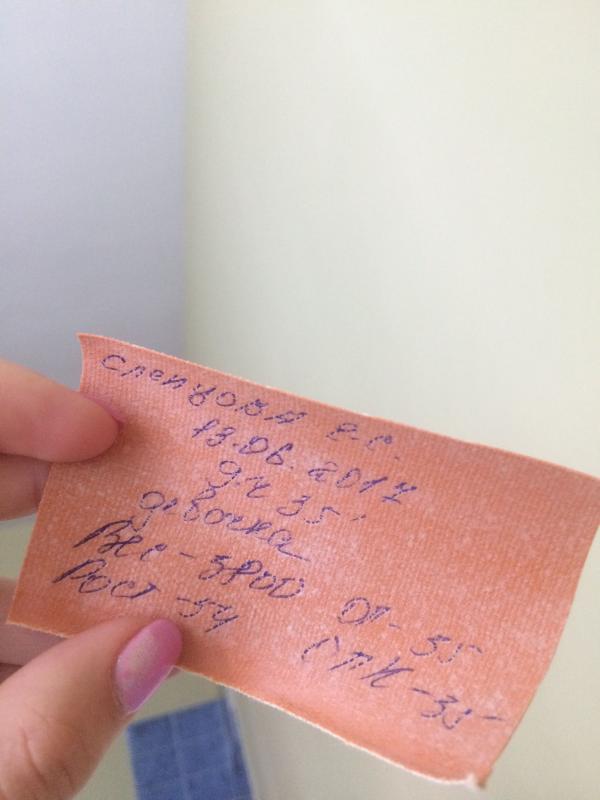 Слепцова Е.С.
13.06.2017
9ч 35'
девочка
Вес - 3900
Рост - 54 ОГ - 35
- 35